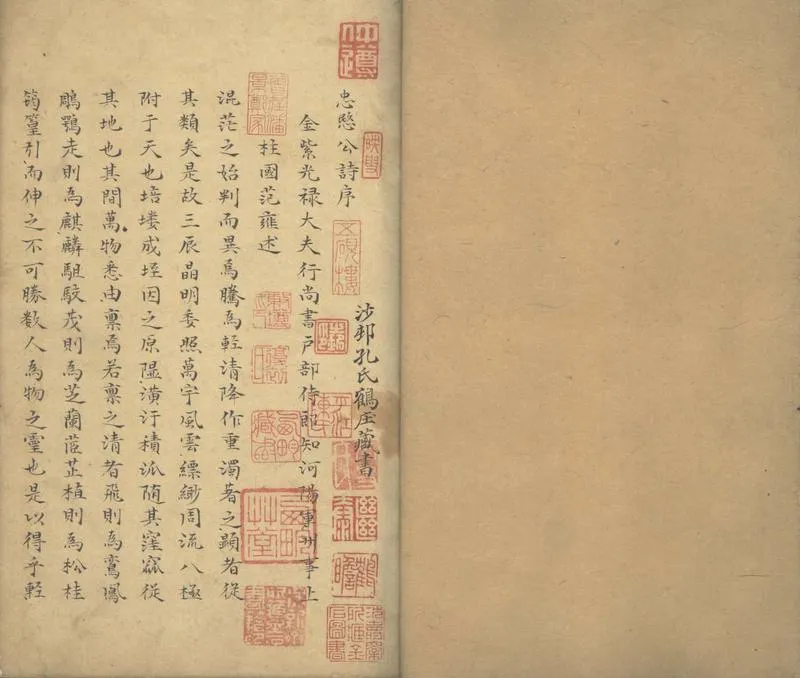 仲遵
沙邨孔氏鶴藏書
忠愍公詩序
五硯樓
鶴瞻
金紫光禄大夫行尚書户部侍郎知河陽軍州事上
柱國范雍述
混茫之始判而異焉騰為輕清降作重濁著之顯者從
其類矣是故三辰晶明委照萬宇風雲縹緲周流八極
附于天也培塿成垤因之原隰潢汙積泒随其窪窳從
其地也其間萬物悉由禀焉若禀之清者飛則為鸞鳳
鵰鶚走則為麒麟駔駮茂則為芝蘭茝芷植則為松桂
筠篁引而伸之不可勝数人為物之靈也是以得乎輕